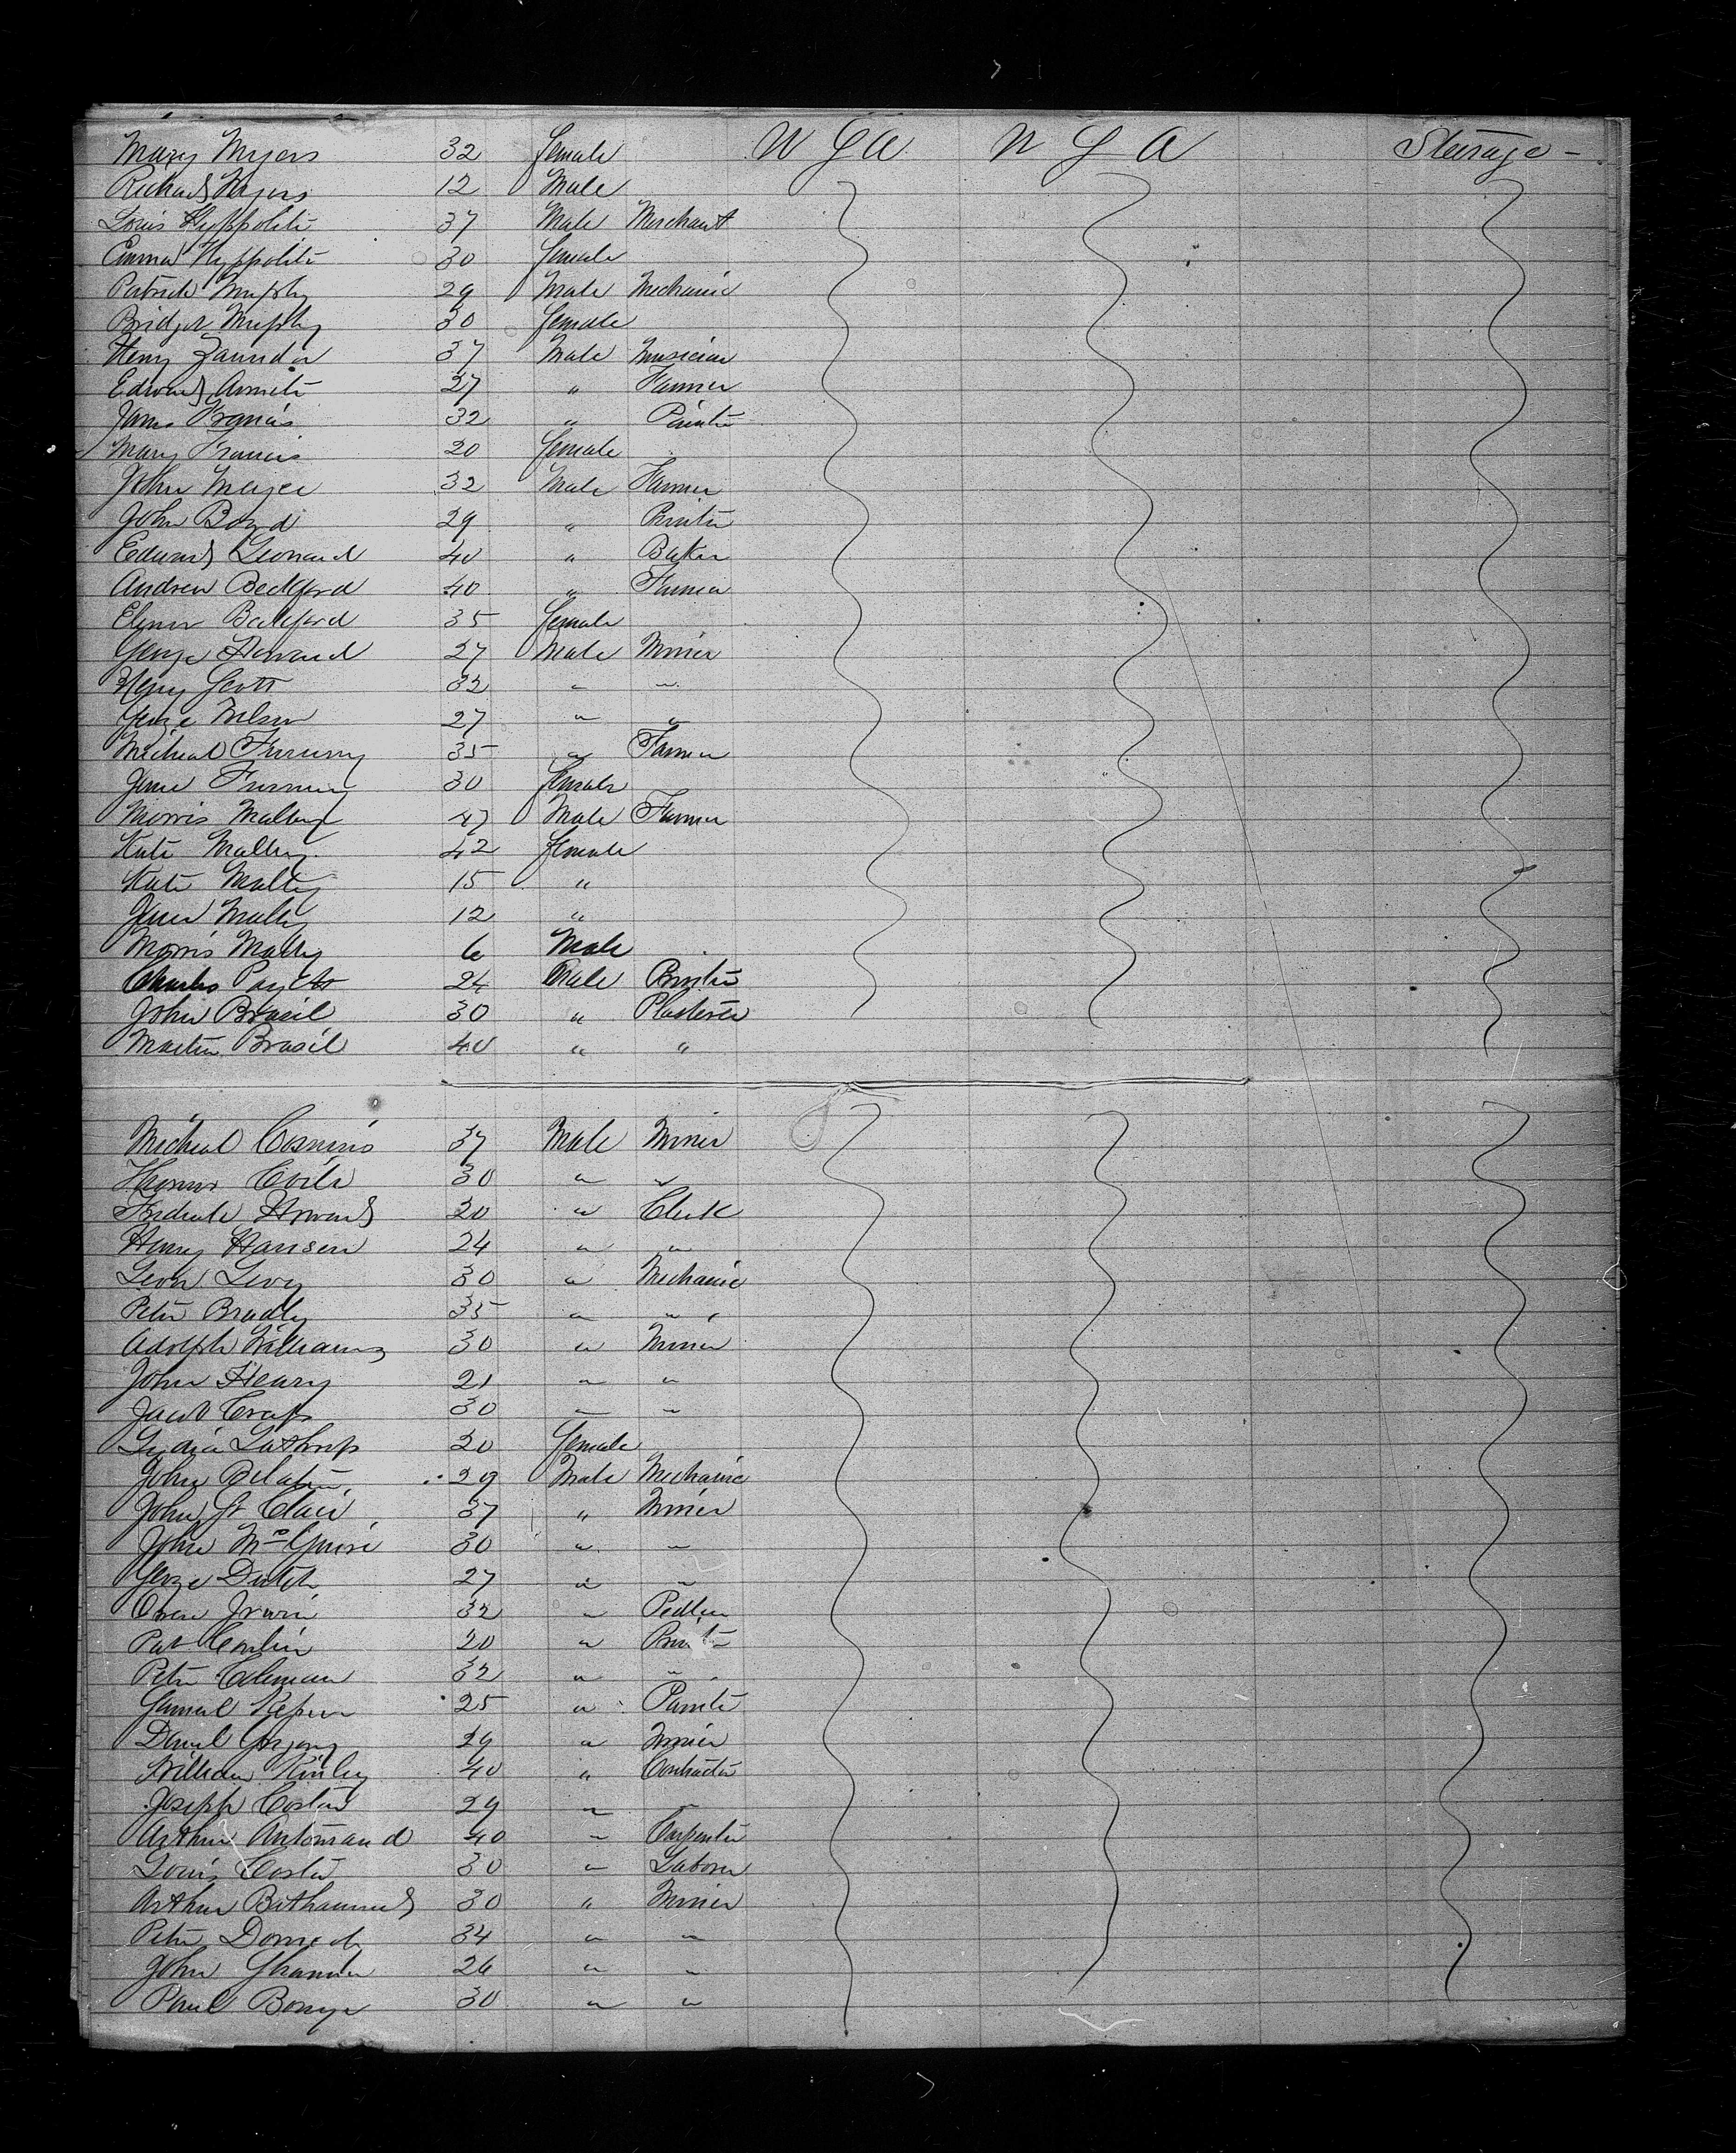 Mary Myers 32 female U S A U S A Steerage -
Richard Myers 12 Male
Louis Hyppolite 37 Male Merchant
Emma Hyppolite 30 female
Patrick Murphy 29 Male Mechanic
Bridget Murphy 30 female
Henry 37 Male Musician
Edward 27 " Farmer
James Francis 32 " Painter
Mary Francis 20 female
John 32 Male Farmer
John Boyd 29 " Printer
Edward Leonard 40 " Baker
Andrew Beckford 40 " Farmer
Elenor Beckford 35 female
George Howard 27 Male Miner
Henry Scott 32 " "
George Nelson 27 " "
Micheal 35 " Farmer
Jane 30 female
Morris Malley 47 Male Farmer
Kate Malley 42 female
Kate Malley 15 "
Jane Malley 12 "
Morris Malley 6 Male
Charles 24 Male Printer
John Brasil 30 " Plasterer
Martin Brasil 40 " "
Micheal 37 Male Miner
Thomas 30 " "
Frederick Howard 20 " Clerk
Henry Hansen 24 " "
Leon Levy 30 " Mechanic
Peter Bradly 35 " "
Adolph Williams 30 " Miner
John Henry 21 " "
Jacob 30 " "
Lydia Lathrop 20 female
John 29 Male Mechanic
John St Clair 37 " Miner
John McGuire 30 " "
George Dutch 27 " "
Owen Irwin 32 " Pedler
Pat Conlin 20 " Printer
Peter Coleman 32 " "
Samuel 25 " Painter
Daniel 29 " Miner
William 40 " Contractor
Joseph Costa 29 " "
Arthur 40 " Carpenter
Louis Costa 30 " Laborer
Arthur 30 " Miner
Peter 34 " "
John 26 " "
Paul 30 " "